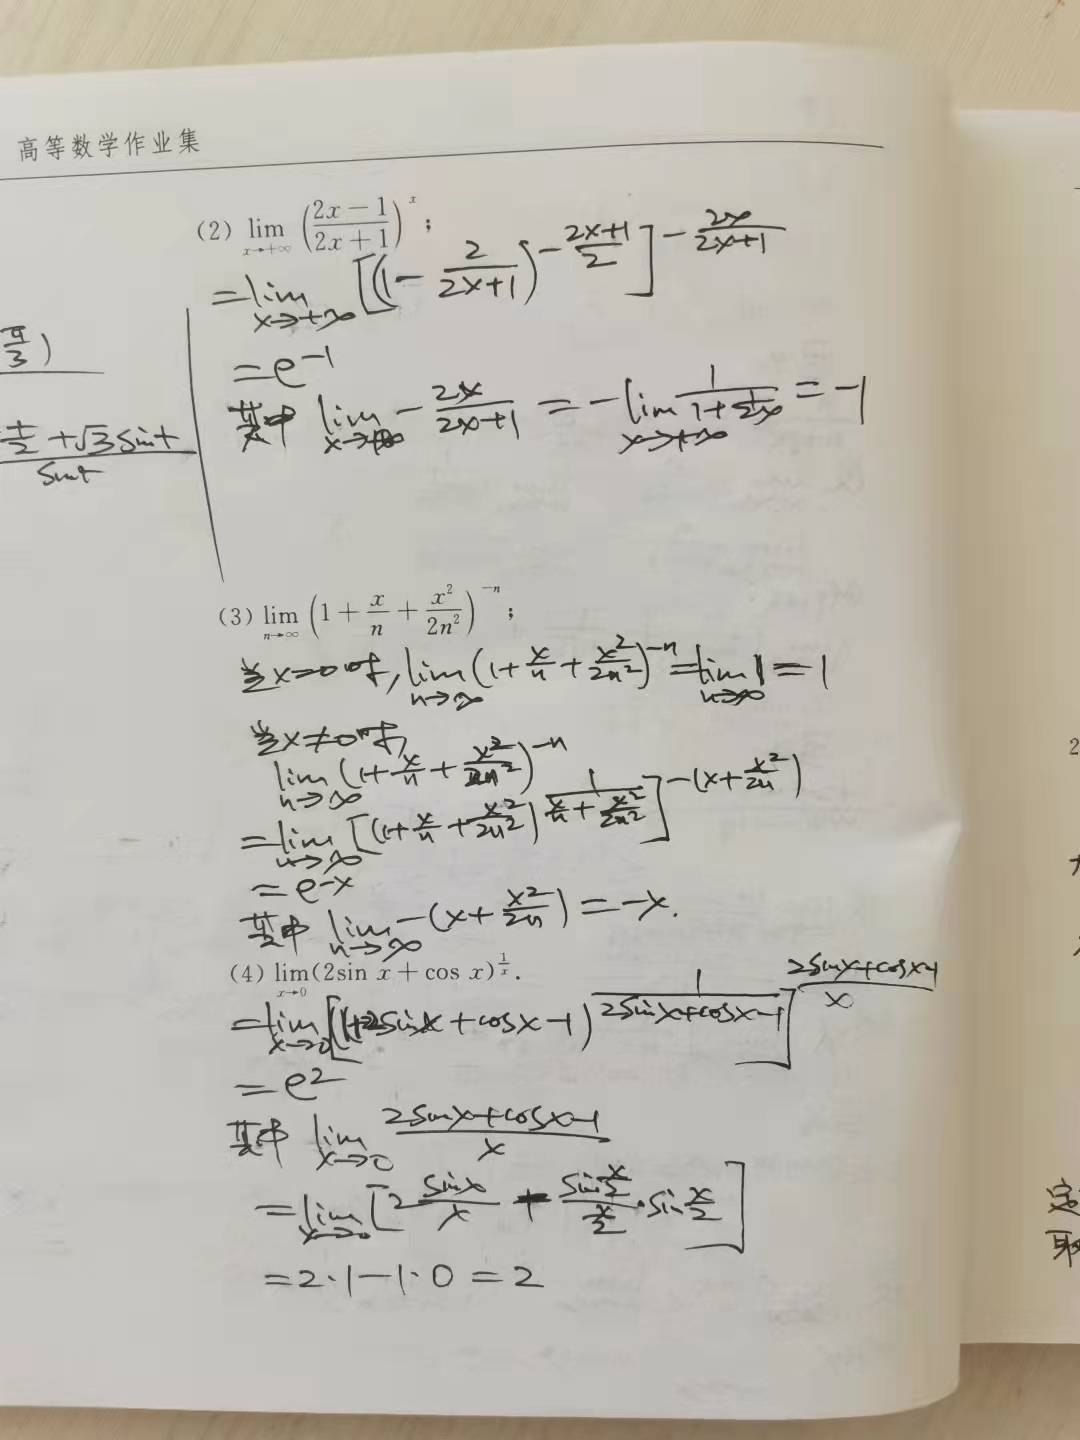 高等数学作业集
(2) lim x→+∞ ((2x−1)/(2x+1))^x;
= lim x→+∞ [(1 − 2/(2x+1))^(−(2x+1)/2)]^(−2x/(2x+1))
= e^(−1)
其中 lim x→+∞ −2x/(2x+1) = −lim x→+∞ 1/(1+1/(2x)) = −1
π/3)
t/2 + √3 sin t
sin t
(3) lim n→∞ (1 + x/n + x²/(2n²))^(−n);
当x=0时, lim n→∞ (1 + x/n + x²/(2n²))^(−n) = lim n→∞ 1 = 1
当x≠0时,
lim n→∞ (1 + x/n + x²/(2n²))^(−n)
= lim n→∞ [(1 + x/n + x²/(2n²))^(1/(x/n + x²/(2n²)))]^(−(x + x²/(2n)))
= e^(−x)
其中 lim n→∞ −(x + x²/(2n)) = −x.
(4) lim x→0 (2sin x + cos x)^(1/x).
= lim x→0 [(1+2sinx+cosx−1)^(1/(2sinx+cosx−1))]^((2sinx+cosx−1)/x)
= e²
其中 lim x→0 (2sinx+cosx−1)/x
= lim x→0 [2 sinx/x − sin(x/2)/(x/2) · sin(x/2)]
= 2·1−1·0 = 2
2
定
取